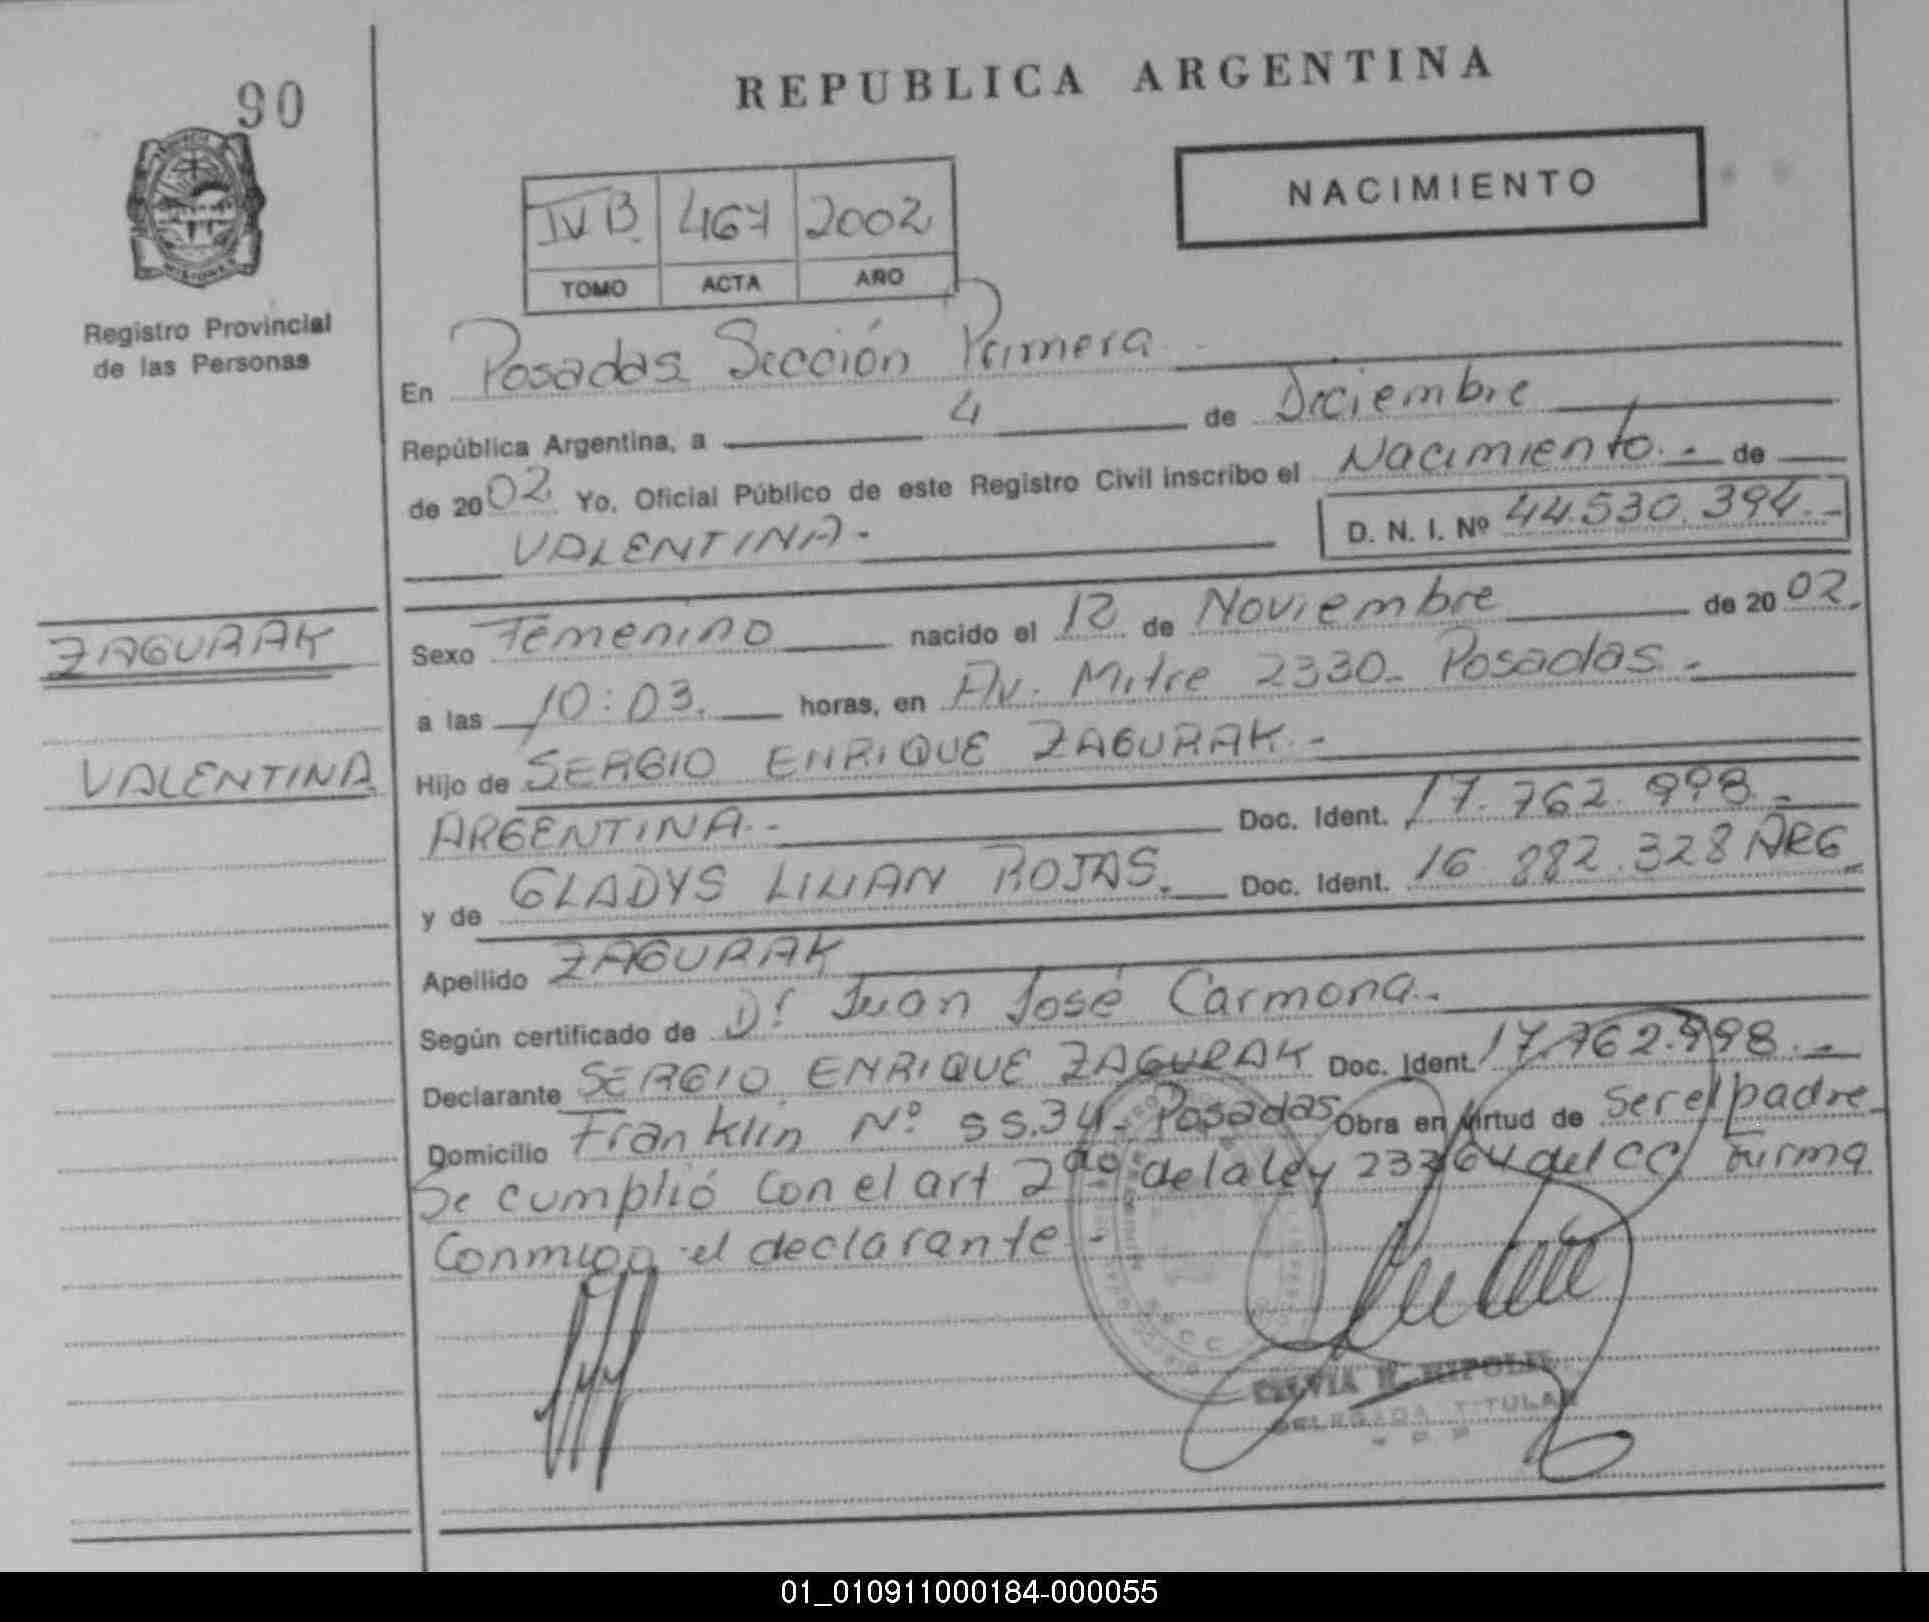 90
REPUBLICA ARGENTINA
NACIMIENTO
IV B. 467 2002
TOMO ACTA AÑO
Registro Provincial
de las Personas
En Posadas Sección Primera
República Argentina, a 4 de Diciembre
de 2002 Yo, Oficial Público de este Registro Civil inscribo el Nacimiento.- de
VALENTINA.- D. N. I. Nº 44.530.394.-
ZAGURAK
Sexo Femenino nacido el 12 de Noviembre de 2002.
a las 10:03. horas, en Av. Mitre 2330- Posadas.-
VALENTINA
Hijo de SERGIO ENRIQUE ZAGURAK.-
ARGENTINA.- Doc. Ident. 17.762.998.-
y de GLADYS LILIAN ROJAS. Doc. Ident. 16.882.328 ARG.
Apellido ZAGURAK
Según certificado de Dr Juan José Carmona.-
Declarante SERGIO ENRIQUE ZAGURAK Doc. Ident. 17.762.998.-
Domicilio Franklin Nº ss.34- Posadas Obra en virtud de ser el padre
Se cumplió con el art 2do de la ley 23264 del CC, Firma
Conmigo el declarante.-
DELEGADA TITULAR
01_010911000184-000055